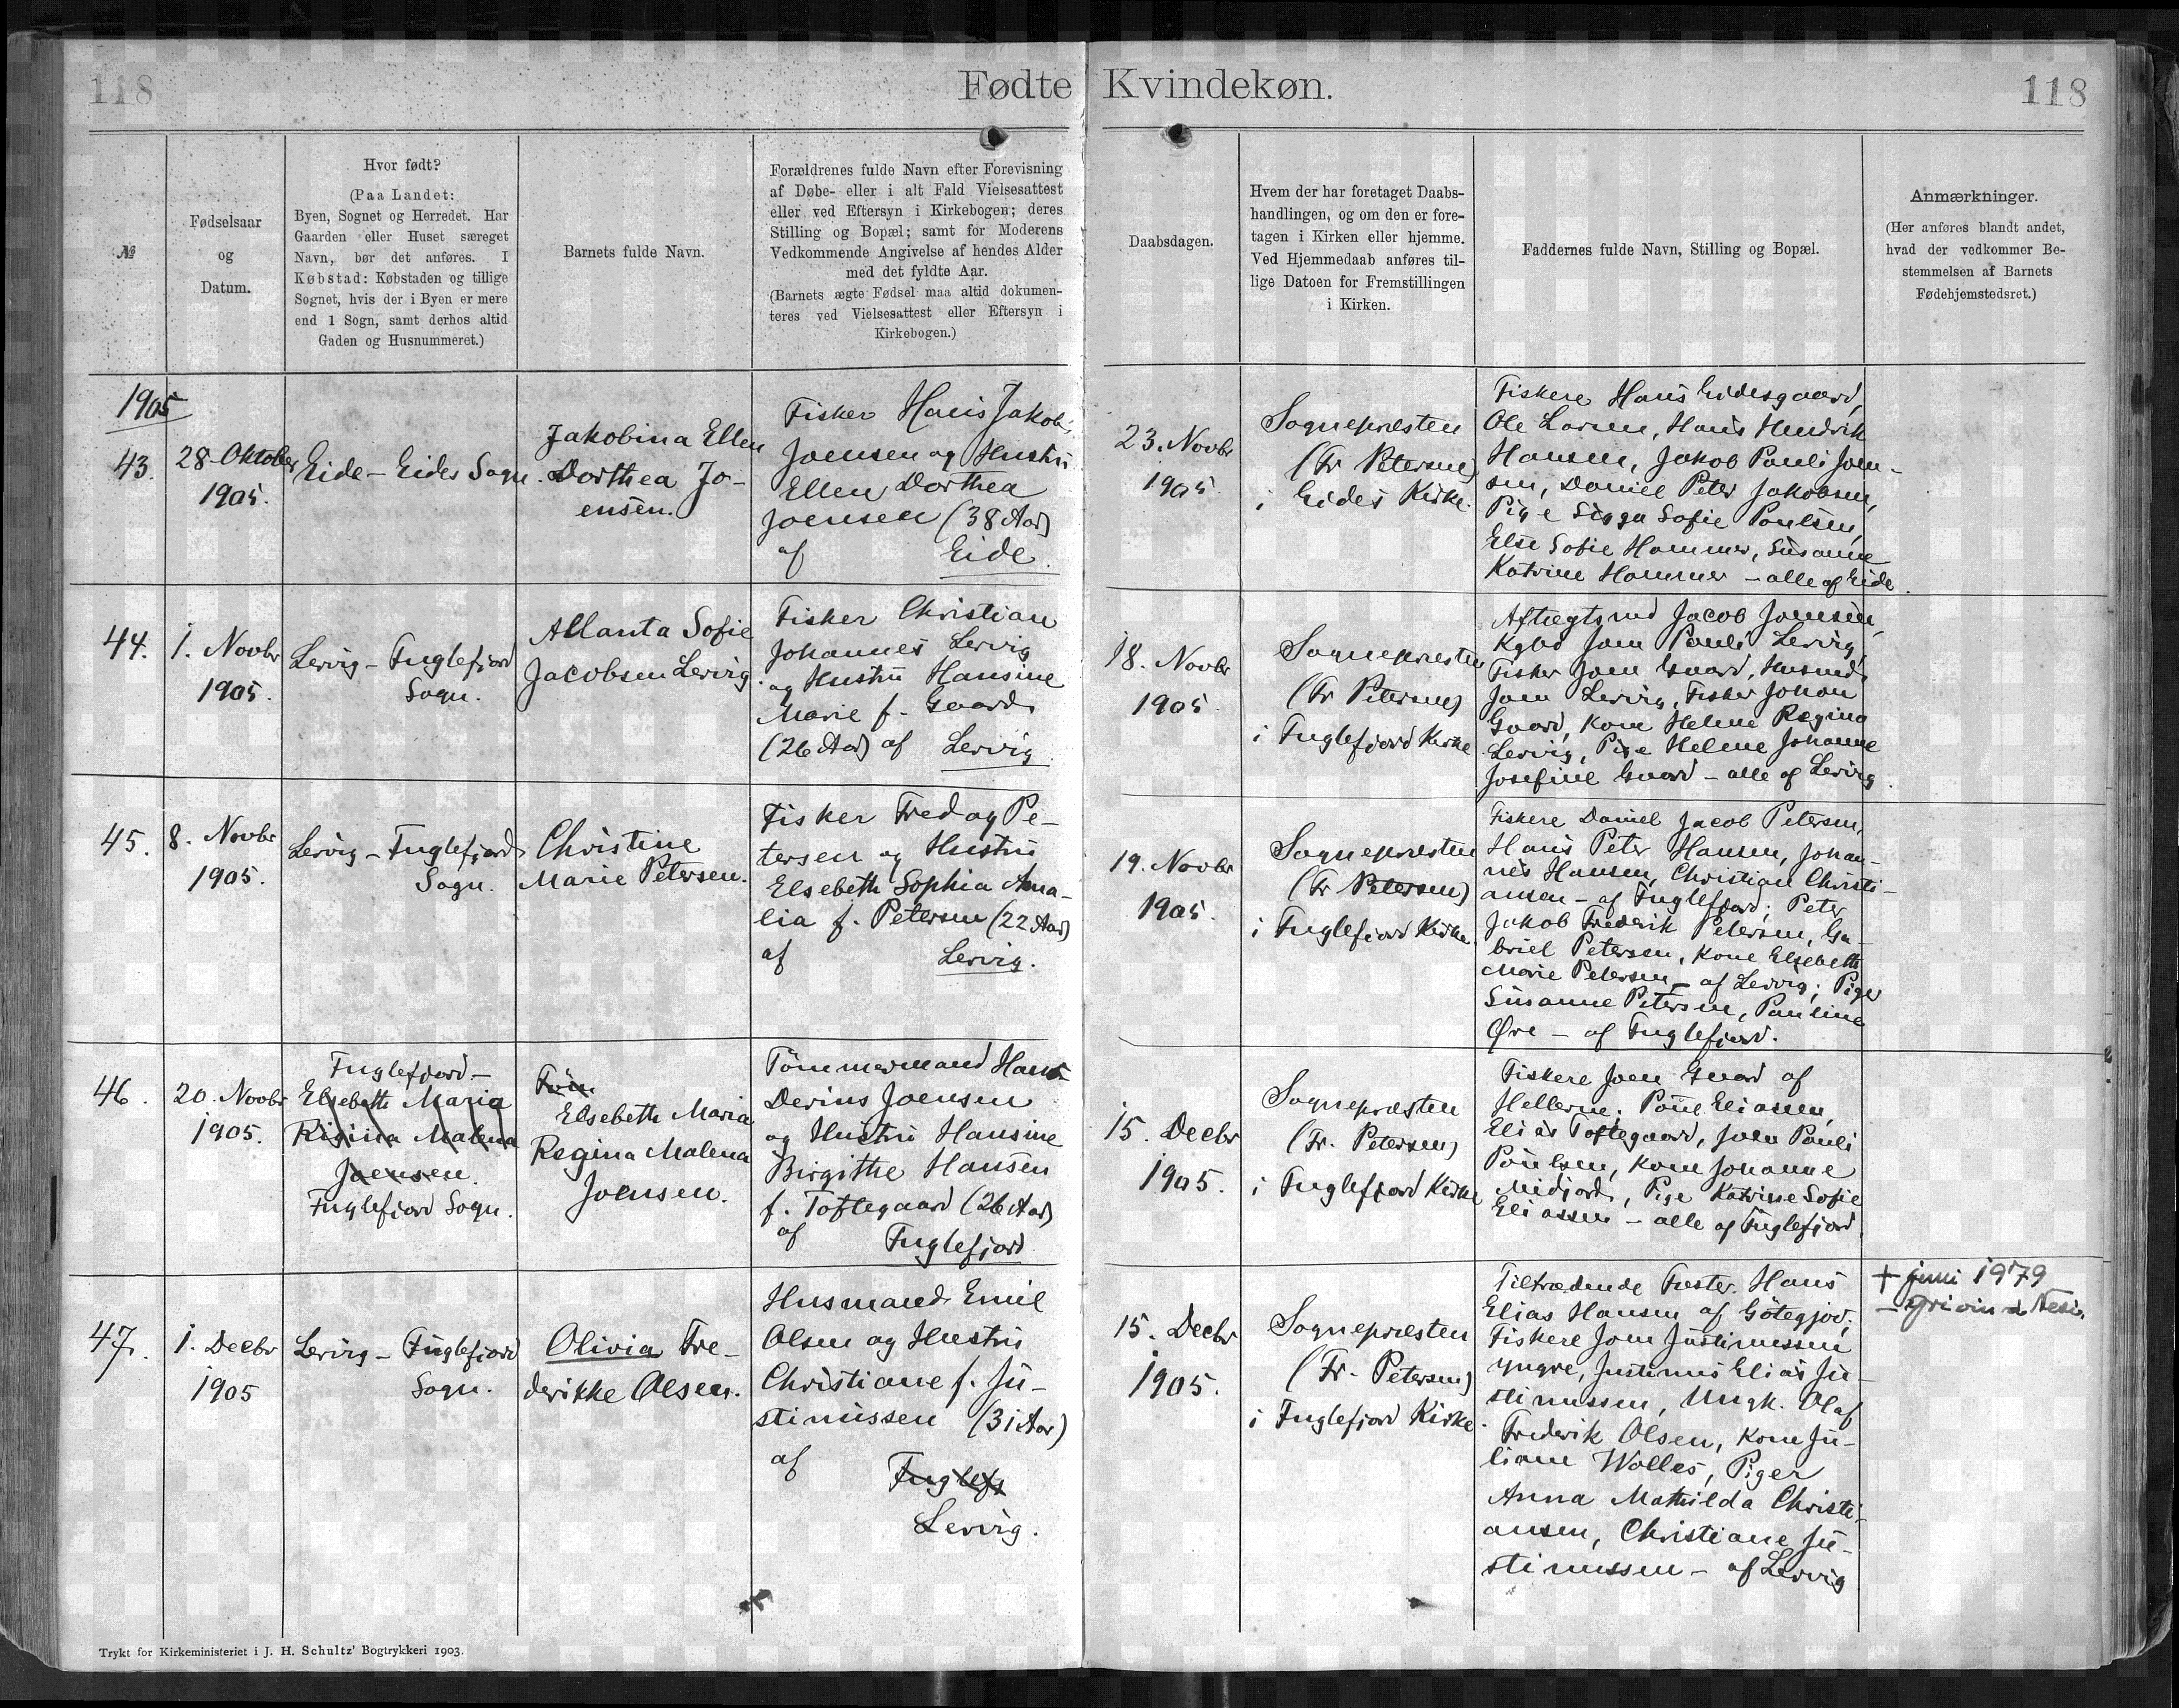 118
Fødte
Kvindekøn.
118
№
Fødselsaar
og
Datum.
Hvor født?
(Paa Landet:
Byen, Sognet og Herredet. Har
Gaarden eller Huset særeget
Navn, bør det anføres. I
Købstad: Købstaden og tillige
Sognet, hvis der i Byen er mere
end 1 Sogn, samt derhos altid
Gaden og Husnummeret.)
Barnets fulde Navn.
Forældrenes fulde Navn efter Forevisning
af Døbe- eller i alt Fald Vielsesattest
eller ved Eftersyn i Kirkebogen; deres
Stilling og Bopæl; samt for Moderens
Vedkommende Angivelse af hendes Alder
med det fyldte Aar.
(Barnets ægte Fødsel maa altid dokumen-
teres ved Vielsesattest eller Eftersyn i
Kirkebogen.)
Daabsdagen.
Hvem der har foretaget Daabs-
handlingen, og om den er fore-
tagen i Kirken eller hjemme.
Ved Hjemmedaab anføres til-
lige Datoen for Fremstillingen
i Kirken.
Faddernes fulde Navn, Stilling og Bopæl.
Anmærkninger.
(Her anføres blandt andet,
hvad der vedkommer Be-
stemmelsen af Barnets
Fødehjemstedsret.)
1905
43.
28. Oktober
1905.
Eide - Eides Sogn.
Jakobina Ellen
Dorthea Jo-
ensen.
Fisker Hans Jakob
Joensen og Hustru
Ellen Dorthea
Joensen (38 Aar)
af Eide.
23. Novbr
1905.
Sognepræsten
(Fr Petersen)
i Eides Kirke.
Fiskere Hans Eidesgaard,
Ole Larsen, Hans Hendrik
Hansen, Jakob Pauli Joen-
sen, Daniel Peter Jakobsen,
Pige Sigga Sofie Poulsen,
Else Sofie Hammer, Susanne
Katrine Hammer - alle af Eide.
44.
1. Novbr
1905.
Lervig - Fuglefjord
Sogn.
Allanta Sofie
Jacobsen Lervig
Fisker Christian
Johannes Lervig
og Hustru Hansine
Marie f. Gaard
(26 Aar) af Lervig.
18. Novbr
1905.
Sognepræsten
(Fr Petersen)
i Fuglefjord Kirke
Aftægtsmd Jacob Joensen,
Kgbd Joen Pauli Lervig,
Fisker Joen Gaard, Husmd
Joen Lervig, Fisker Johan
Gaard, Kone Helene Regina
Lervig, Pige Helene Johanne
Josefine Gaard - alle af Lervig.
45.
8. Novbr
1905.
Lervig - Fuglefjord
Sogn.
Christine
Marie Petersen.
Fisker Fredag Pe-
tersen og Hustru
Elsebeth Sophia Ama-
lia f. Petersen (22 Aar)
af Lervig.
19. Novbr
1905.
Sognepræsten
(Fr Petersen)
i Fuglefjord Kirke.
Fiskere Daniel Jacob Petersen,
Hans Peter Hansen, Johan-
nes Hansen, Christian Christi-
ansen - af Fuglefjord; Peter
Jakob Frederik Petersen, Ga-
briel Petersen, Kone Elsebeth
Marie Petersen - af Lervig; Piger
Susanne Petersen, Pauline
Øre - af Fuglefjord.
46.
20. Novbr
1905.
Fuglefjord -
Elsebeth Maria
Regina Malena
Joensen.
Fuglefjord Sogn.
Elsebeth Maria
Regina Malena
Joensen.
Tömmermand Hans
Derius Joensen
og Hustru Hansine
Birgithe Hansen
f. Toftegaard (26 Aar)
af Fuglefjord
15. Decbr
1905.
Sognepræsten
(Fr. Petersen)
i Fuglefjord Kirke
Fiskere Joen Gaard af
Hellerne, Poul Eliasen,
Elias Toftegaard, Joen Pauli
Poulsen, Kone Johanne
Midjord, Pige Katrine Sofie
Eliassen - alle af Fuglefjord.
47.
1. Decbr
1905
Lervig - Fuglefjord
Sogn.
Olivia Fre-
derikke Olsen.
Husmand Emil
Olsen og Hustru
Christiane f. Ju-
stinussen (31 Aar)
af Fuglefj
Lervig.
15. Decbr
1905.
Sognepræsten
(Fr. Petersen)
i Fuglefjord Kirke.
Tiltrædende Fæster Hans
Elias Hansen af Götegjov;
Fiskere Joen Justinussen
yngre, Justinus Elias Ju-
stinussen, Ungk. Olaf
Frederik Olsen, Kone Ju-
liane Wolles, Piger
Anna Mathilda Christi-
ansen, Christiane Ju-
stinussen - af Lervig
+ juni 1979
Trykt for Kirkeministeriet i J. H. Schultz' Bogtrykkeri 1903.